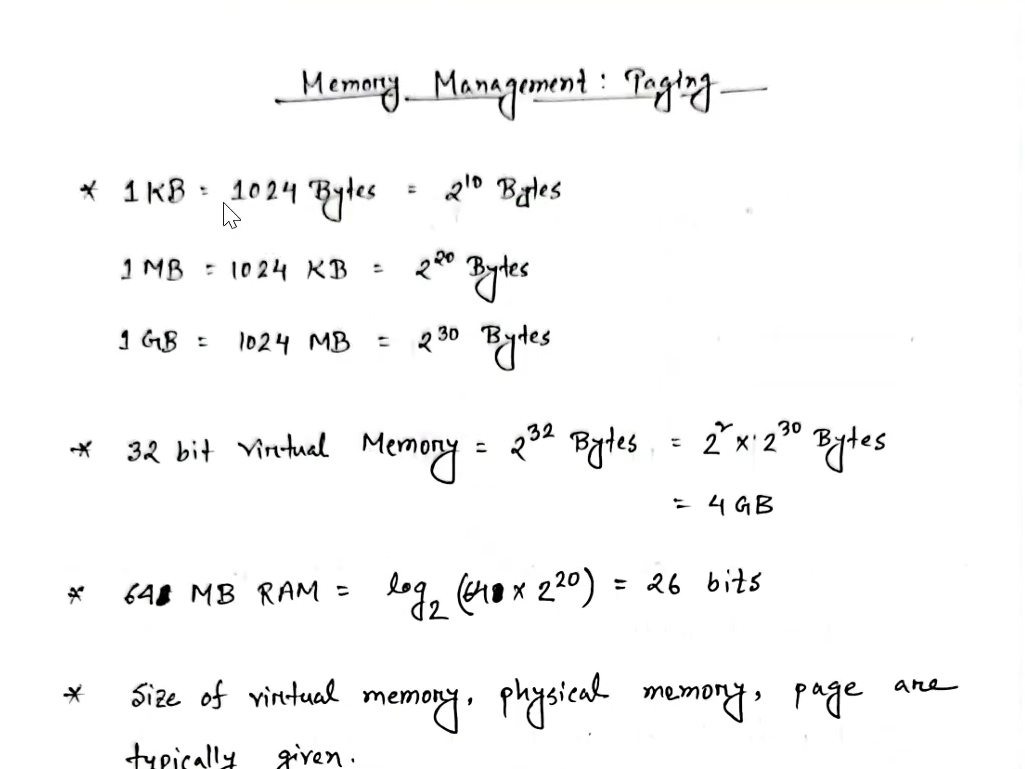 Memory Management : Paging
* 1 KB = 1024 Bytes = 2^10 Bytes
1 MB = 1024 KB = 2^20 Bytes
1 GB = 1024 MB = 2^30 Bytes
* 32 bit virtual Memory = 2^32 Bytes = 2^2 x 2^30 Bytes
= 4 GB
* 64 MB RAM = log2 (64 x 2^20) = 26 bits
* Size of virtual memory, physical memory, page are
typically given.